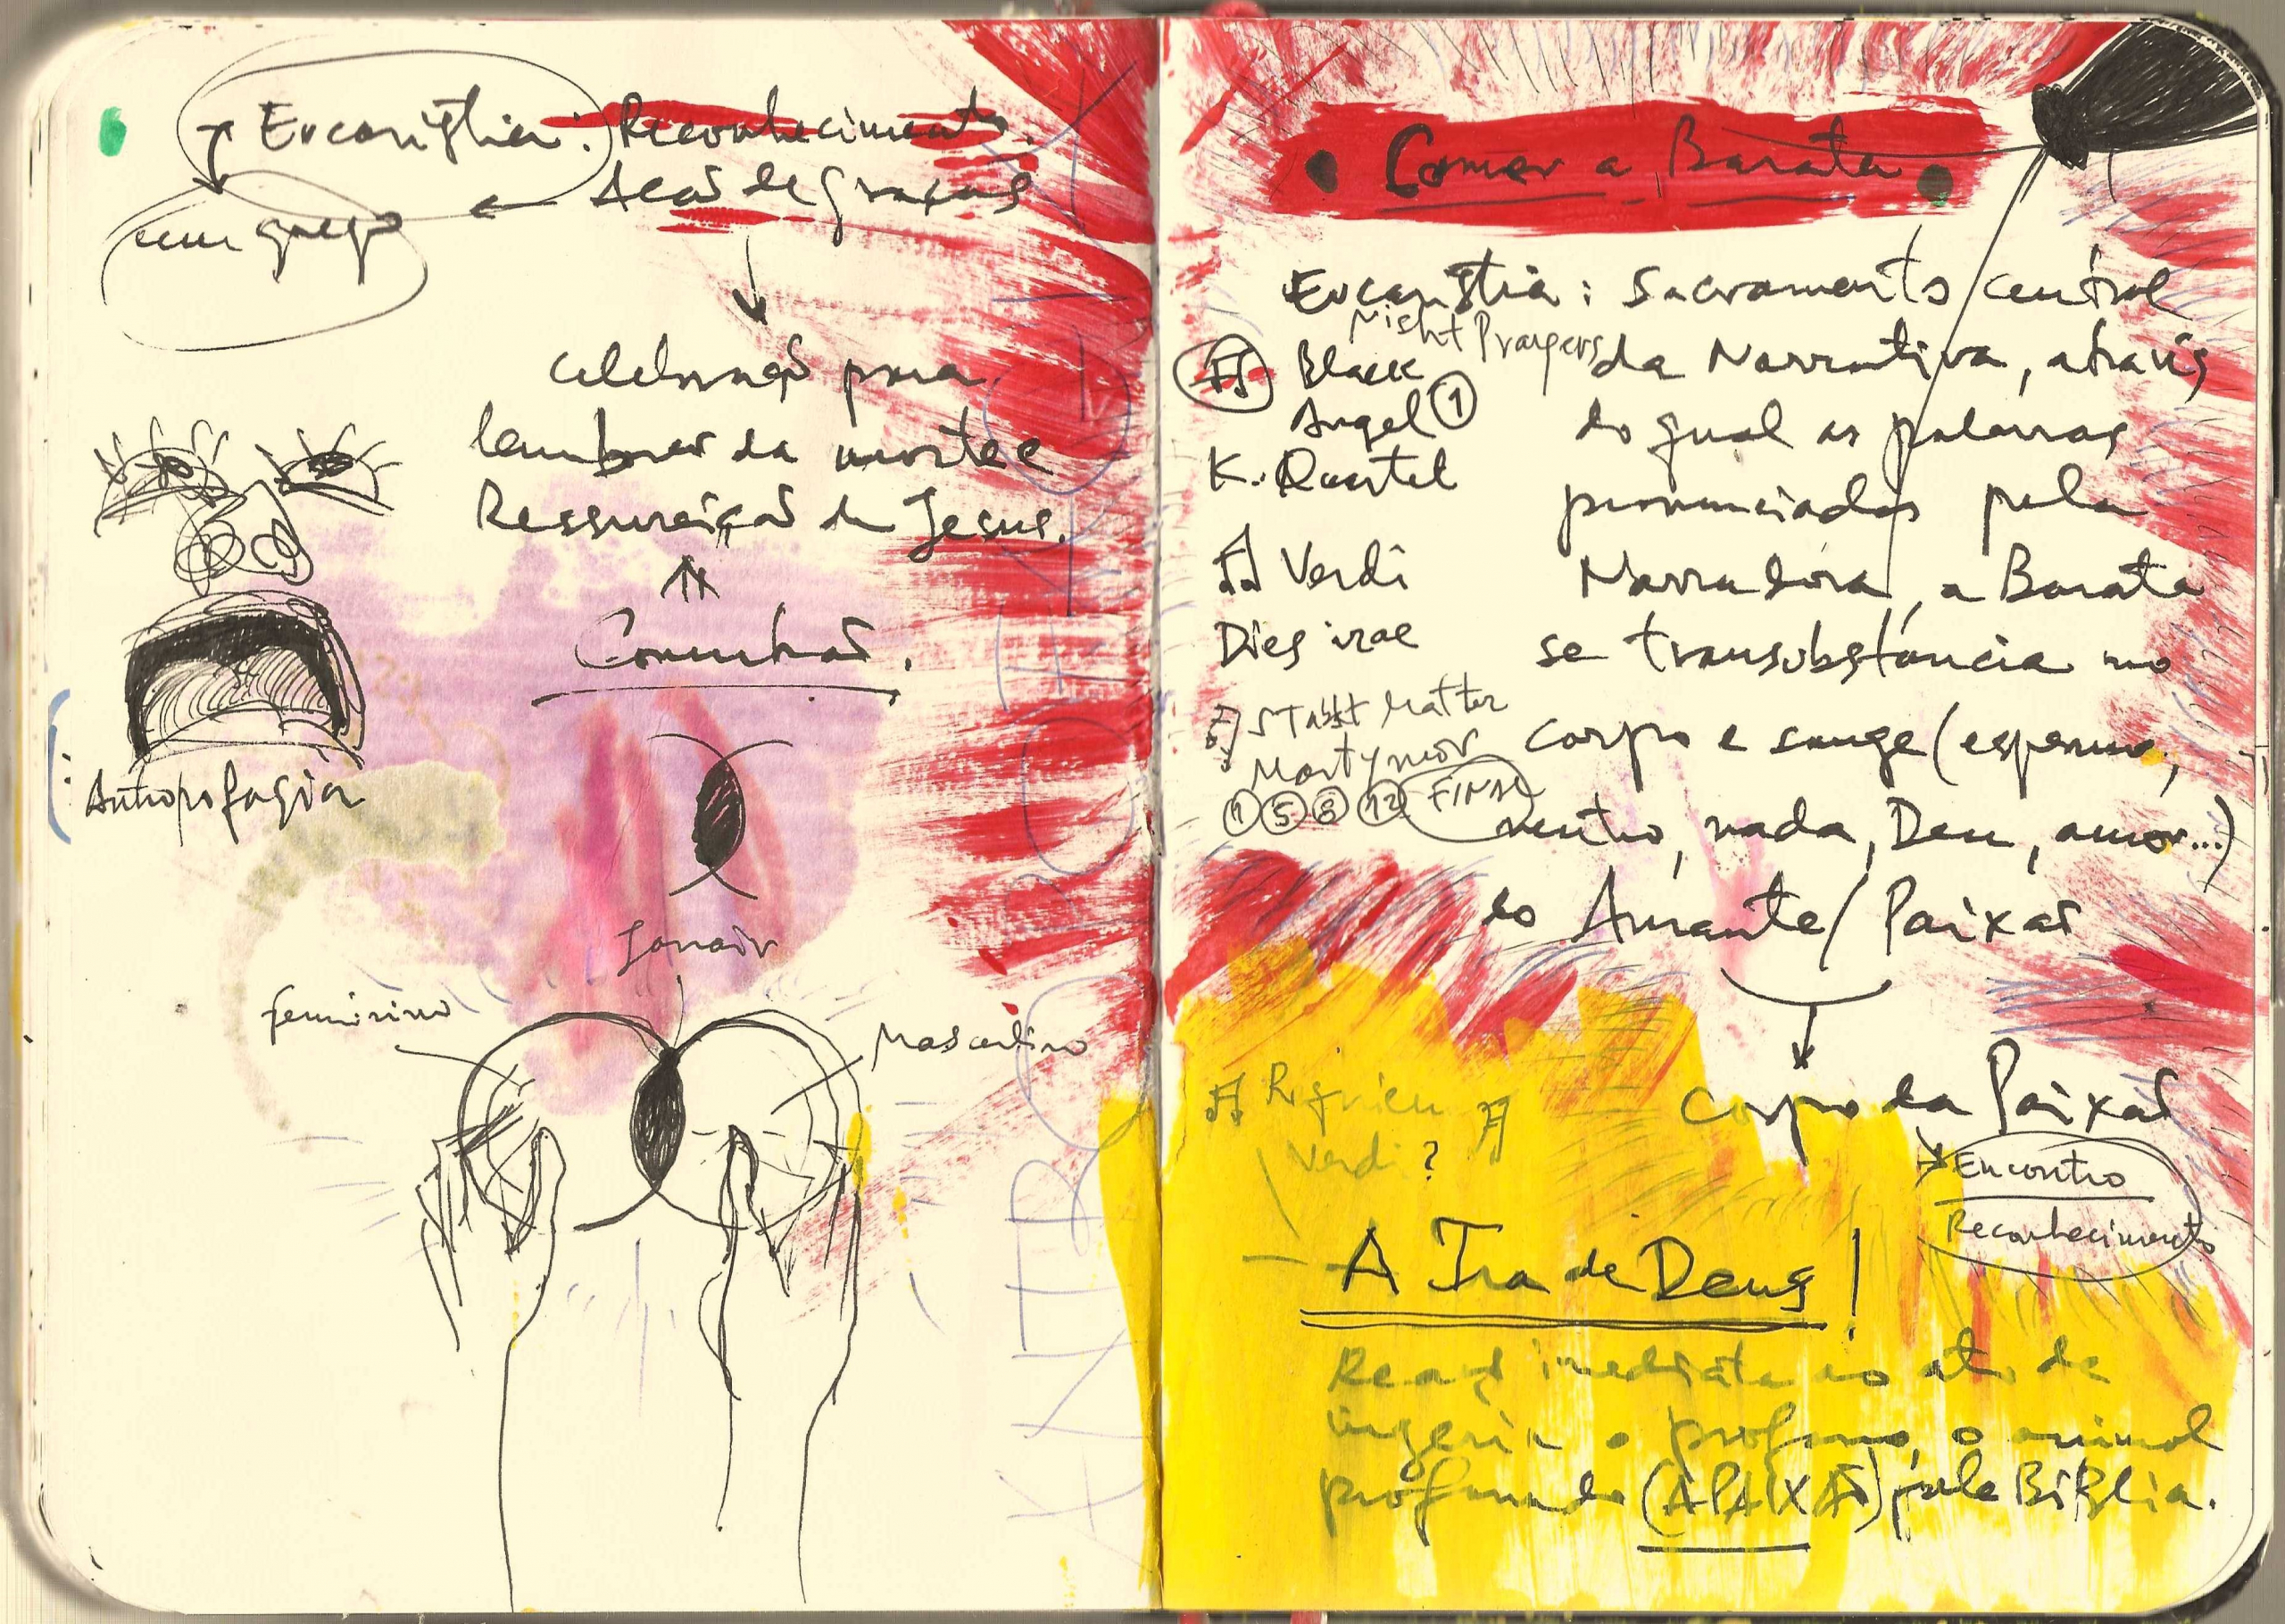 Eucaristia: Reconhecimento.
em grego ← Ação de graças
celebração para
lembrar da morte e
Ressureição de Jesus.
Comunhão.
Antropofagia
Janair
feminino
Masculino
• Comer a Barata •
Eucaristia: Sacramento central
da Narrativa, através
do qual as palavras
pronunciadas pela
Narradora, a Barata
se transubstancia no
corpo e sangue (esperma,
neutro, nada, Deus, amor...)
do Amante/Paixão
corpo da Paixão
Encontro
Reconhecimento
Night Prayers
Black
Angel 1
K. Quartet
Verdi
Dies irae
Stabat Matter
1 5 8 12 FINAL
Requiem
Verdi?
A Ira de Deus!
Reação imediata ao ato de
ingerir o profano, o animal
profanado (A PAIXÃO) pela Bíblia.